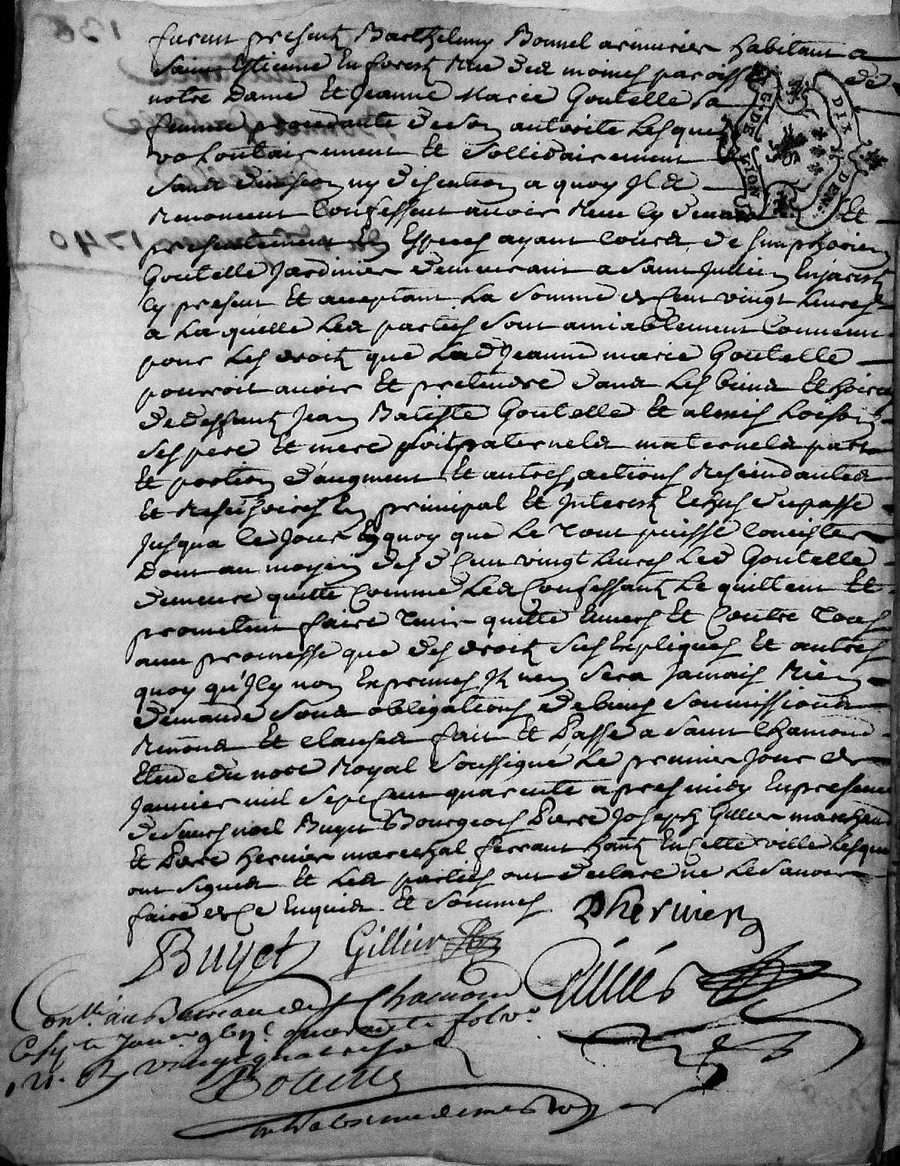 furent presents Barthelemy Bonnel armurier habitant a
Saint Estienne en forest Rue des moines paroisse de
notre Dame Et Jeanne Marie Goutelle sa
femme procedante de son autorité Lesquels
volontairement Et sollidairement
sans division ny discution a quoy Ils
Renoncent Confessent avoir Receu cy devant Et
presentement En Especes ayant cours de Simphorien
Goutelle Jardinier demeurant a Saint Jullien En jarest
cy present Et acceptant La somme de Cent vingt Livres
a La quelle Les parties sont amiablement convenu
pour Les droits que Lad Jeanne marie Goutelle
pouroit avoir Et pretendre dans Les biens Et hoiries
de deffunts Jean Batiste Goutelle Et
ses pere Et mere paternels maternels part
Et portion d'augment Et autres actions Rescindantes
Et Rescisoires En principal Et Interest Echus du passé
Jusqua Ce Jour En quoy que Le tout puisse Concister
Dont au moyen desd Cent vingt Livres Led Goutelle
demeure quitte Comme Les Confessants Le quittent Et
promettent faire tenir quitte Envers Et Contre tous
avec promesse que des droits sus Expliqués Et autres
quoy qu'Icy non Exprimés Il n'en sera Jamais Rien
demandé sous obligations de biens soumissions
Renons Et clauses fait Et Passé a Saint Chamond
Etude du notre Royal Soussigné Le premier Jour de
Janvier mil sept Cent quarente apres midy En presence
de sieurs noel Buyet Bourgeois Pierre Joseph Gillier marchand
Et Pierre hervier marechal ferrant hants En cette ville Lesquels
ont signés Et Les parties ont déclaré ne Le savoir
faire de Ce Enquis Et sommés
Phervier
Buyet Gillier
Conllé au Bureau de St Chamond
quarante fol
vingt quatre sols
DIX DEN.
G. DE LION
1740